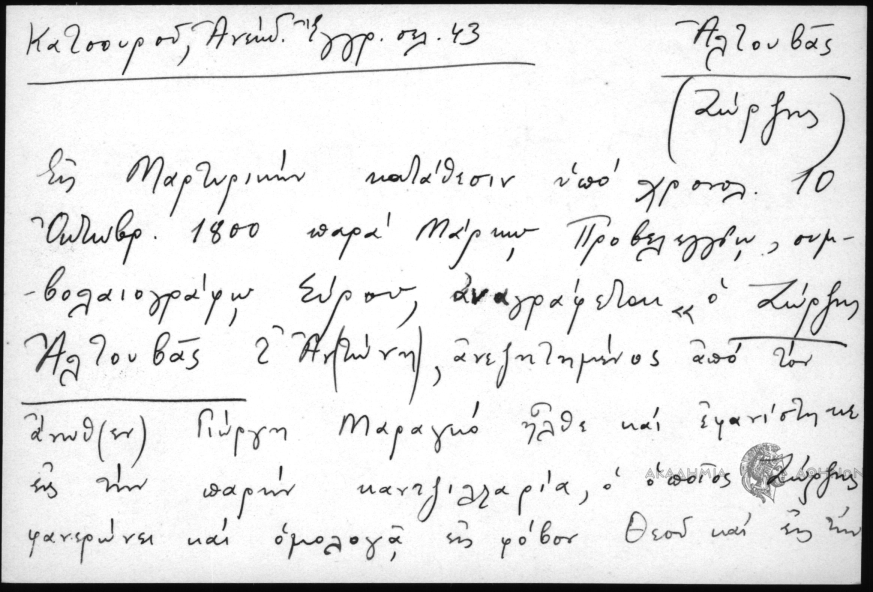 Κατσουροῦ, Ἀνέκδ. Ἔγγρ. σελ. 43
Ἀλτουβᾶς
(Ζώρζης)
Εἰς Μαρτυρικὴν κατάθεσιν ὑπό χρονολ. 10
Ὀκτωβρ. 1800 παρά Μάρκῳ Προβελεγγίῳ, συμ-
-βολαιογράφῳ Σύρου, ἀναγράφεται « ὁ Ζώρζης
Ἀλτουβᾶς τ̃ Ἀν(τώνη), ἀνεζητημένος ἀπό τόν
ἄνωθ(εν) Γιώργη Μαραγκό ἦλθε καί ἐφανίστηκε
εἰς τήν παρήν καντζιλλαρία, ὁ ὁποῖος Ζώρζης
φανερώνει καί ὁμολογᾷ εἰς φόβον Θεοῦ καί εἰς τήν
ΑΚΑΔΗΜΙΑ ΑΘΗΝΩΝ